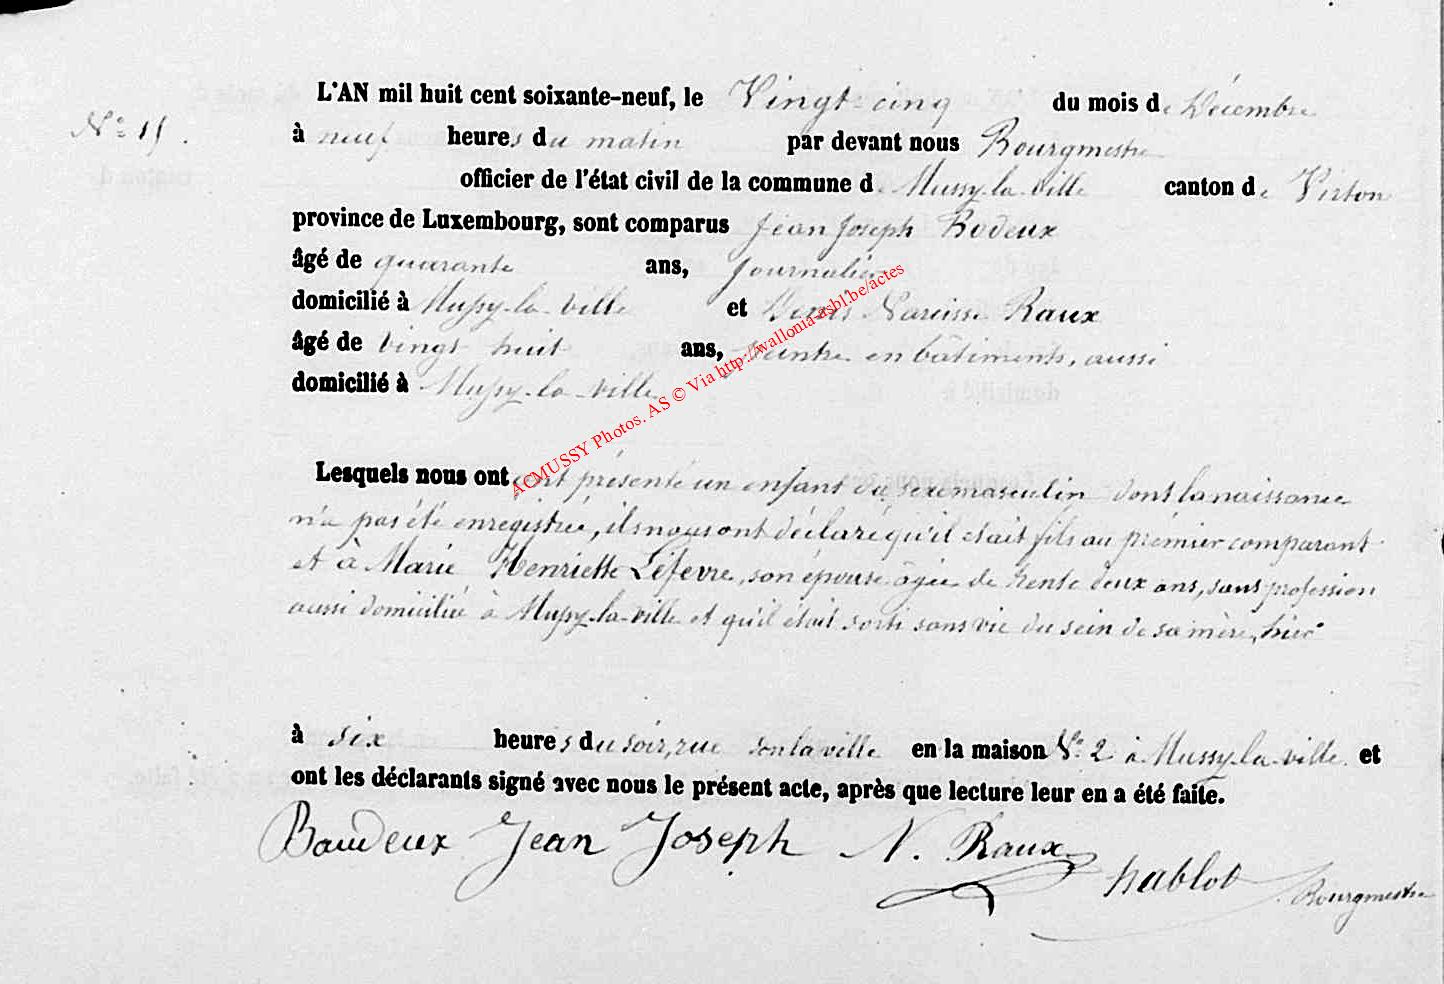 L'AN mil huit cent soixante-neuf, le Vingt cinq du mois de Décembre
N° 15.
à neuf heures du matin par devant nous Bourgmestre
officier de l'état civil de la commune de Mussy-la-ville canton de Virton
province de Luxembourg, sont comparus Jean Joseph Bodeux
âgé de quarante ans, Journalier
domicilié à Mussy-la-ville et Denis Narcisse Raux
âgé de vingt huit ans, peintre en bâtiments, aussi
domicilié à Mussy-la-ville
ACMUSSY Photos. AS © Via http://wallonia-asbl.be/actes
Lesquels nous ont ont présenté un enfant du sexe masculin dont la naissance
n'a pas été enregistrée, ils nous ont déclaré qu'il était fils au prémier comparant
et à Marie Henriette Lefevre, son épouse âgée de trente deux ans, sans profession
aussi domiciliée à Mussy-la-ville et qu'il était sorti sans vie du sein de sa mère, hier
à six heures du soir, rue sous la ville en la maison N° 2 à Mussy-la-ville. et
ont les déclarants signé avec nous le présent acte, après que lecture leur en a été faite.
Baudeux Jean Joseph N. Raux hablot Bourgmestre